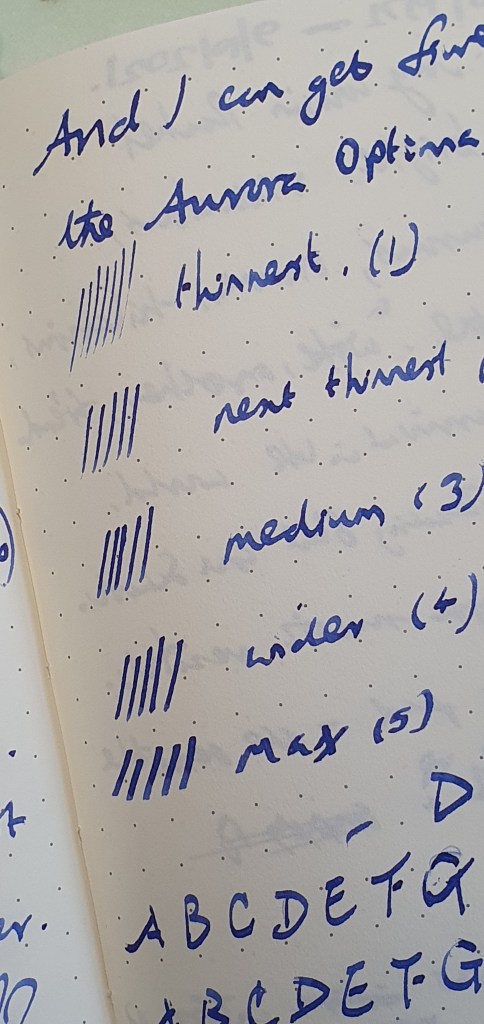 And I can get five
the Aurora Optima
thinnest. (1)
next thinnest (
medium (3)
wider (4)
max (5)
D
A B C D E F G
A B C D E F G
er.